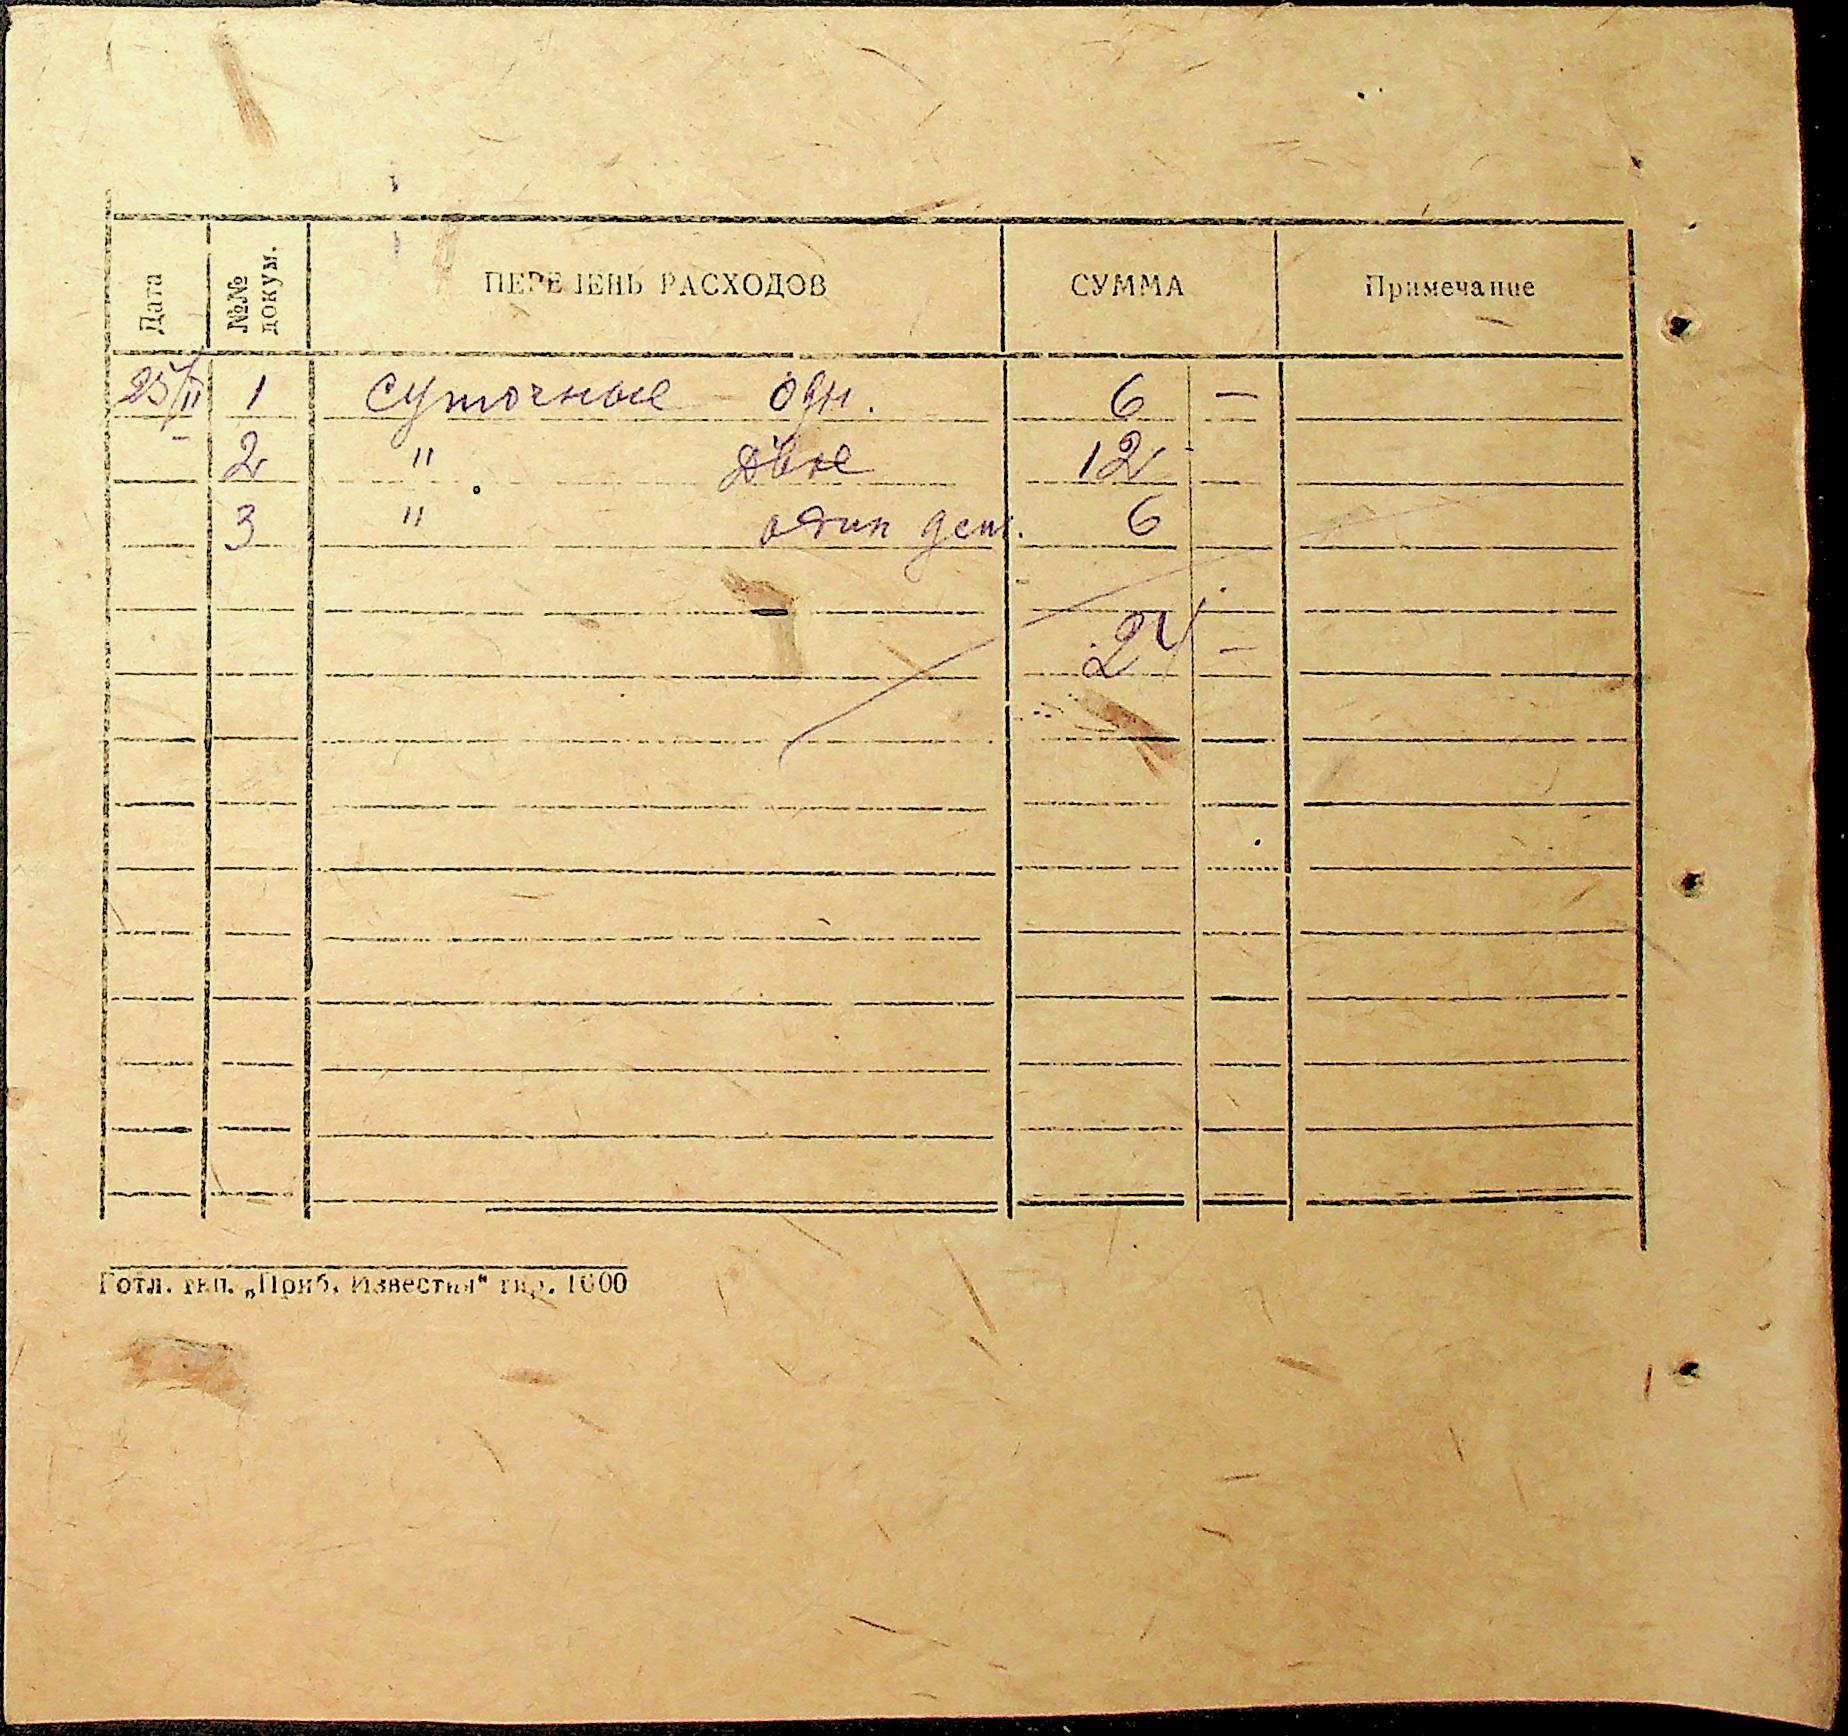 Дата №№ докум. ПЕРЕЧЕНЬ РАСХОДОВ СУММА Примечание
25/II 1 суточные одн. 6 —
2 " двое 12
3 " один ден. 6
24 —
Готл. тип. „Приб. Известия“ тир. 1000